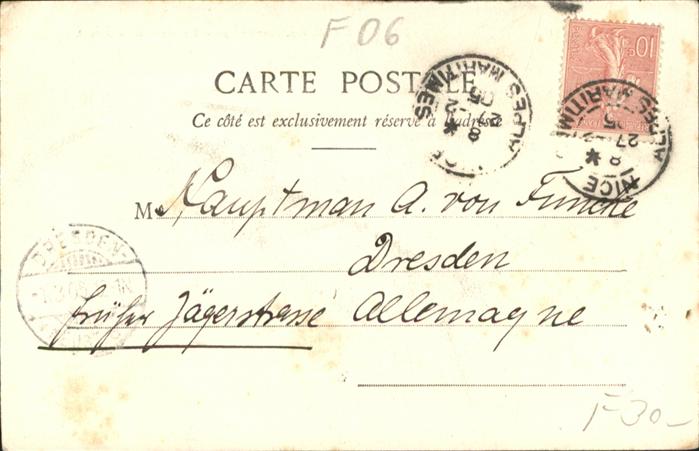 F 06
CARTE POSTALE
Ce côté est exclusivement réservé à l'adresse
10 c
NICE ALPES MARITIMES
NICE ALPES MARITIMES
8 * 27 -2 05
M Hauptman A. von Funcke
DRESDEN-
Dresden
früher Jägerstrasse Allemagne
F 30 –